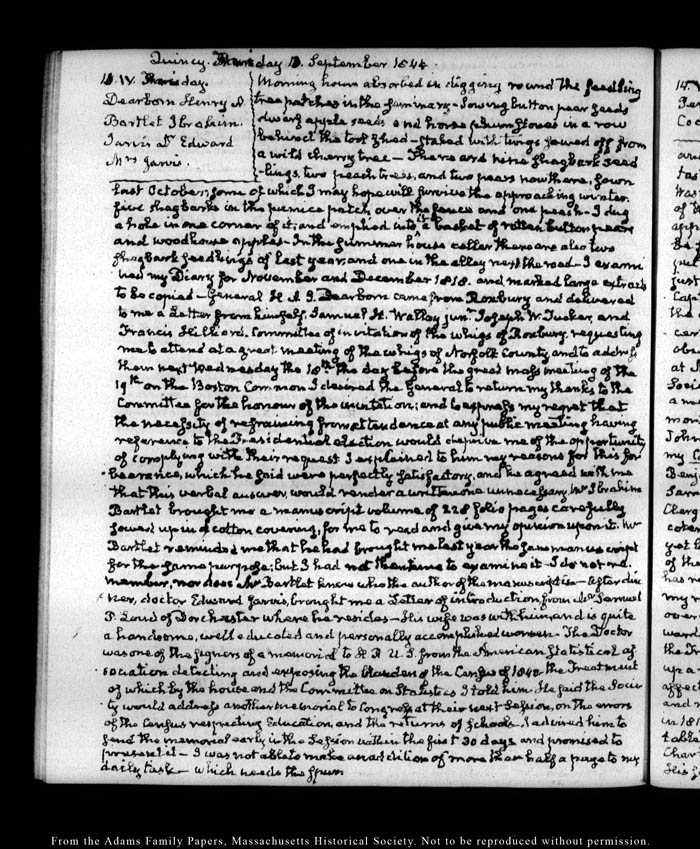 Quincy. Thursday 12. September 1844.
12. IV. Thursday.
Dearborn Henry A
Bartlet Ibrahim.
Jarvis Dr Edward
Mrs Jarvis.
Morning hours absorbed in digging round the seedling
tree patches in the summary - Sowing button pear seeds
dwarf apple seeds and horse plum stones in a row
behind the tool shed - staked with twigs sawed off from
a wild cherry tree - There are nine shagbark seed
-lings, two peach trees, and two pears now there, sown
last October; some of which I may hope will survive the approaching winter.
five shagbarks in the patch over the fence and one peach - I dug
a hole in one corner of it; and emptied into it a basket of rotten button pears
and woodhouse apples - In the summer house cellar there are also two
shagbark seedlings of last year, and one in the alley next the road - I exami
ned my Diary for November and December 1818. and marked large extracts
to be copied - General H. A. S. Dearborn came from Roxbury and delivered
to me a Letter from himself, Samuel H. Walley junr. Joseph W. Tucker, and
Francis Hilliard. Committee of invitation of the whigs of Roxbury, requesting
me to attend at a great meeting of the whigs of Norfolk County, and to address
them next Wednesday the 18th the day before the great mass meeting of the
19th on the Boston Common I desired the General to return my thanks to the
Committee for the honour of the invitation; and to express my regret that
the necessity of refraining from attendance at any public meeting having
reference to the Presidential election would deprive me of the opportunity
of complying with their request I explained to him my reasons for this for
bearance, which he said were perfectly satisfactory, and he agreed with me
that this verbal answer, would render a written one unnecessary. Mr Ibrahim
Bartlet brought me a manuscript volume of 228 folio pages carefully
sewed up in a cotton covering, for me to read and give my opinion upon it. Mr
Bartlet reminded me that he had brought me last year the same manuscript
for the same purpose; but I had not then time to examine it - I do not re.
member, nor does Mr Bartlet know who the author of the manuscript is - After din
ner, doctor Edward Jarvis, brought me a Letter of introduction from Samuel
P. Loud of Dorchester where he resides - His wife was with him, and is quite
a handsome, well educated and personally accomplished woman - The Doctor
was one of the signers of a memorial to H R U. S. from the American Statistical As
sociation detecting and exposing the blunders of the Census of 1840 the treatment
of which by the house and the Committee on Statistics I told him. He said the Socie
ty would address another memorial to Congress at their next Session, on the errors
of the Census respecting Education, and the returns of schools. I advised him to
send the memorial early in the Session within the first 30 days and promised to
present it - I was not able to make an addition of more than half a page to my
daily task - which needs the spur
From the Adams Family Papers, Massachusetts Historical Society. Not to be reproduced without permission.